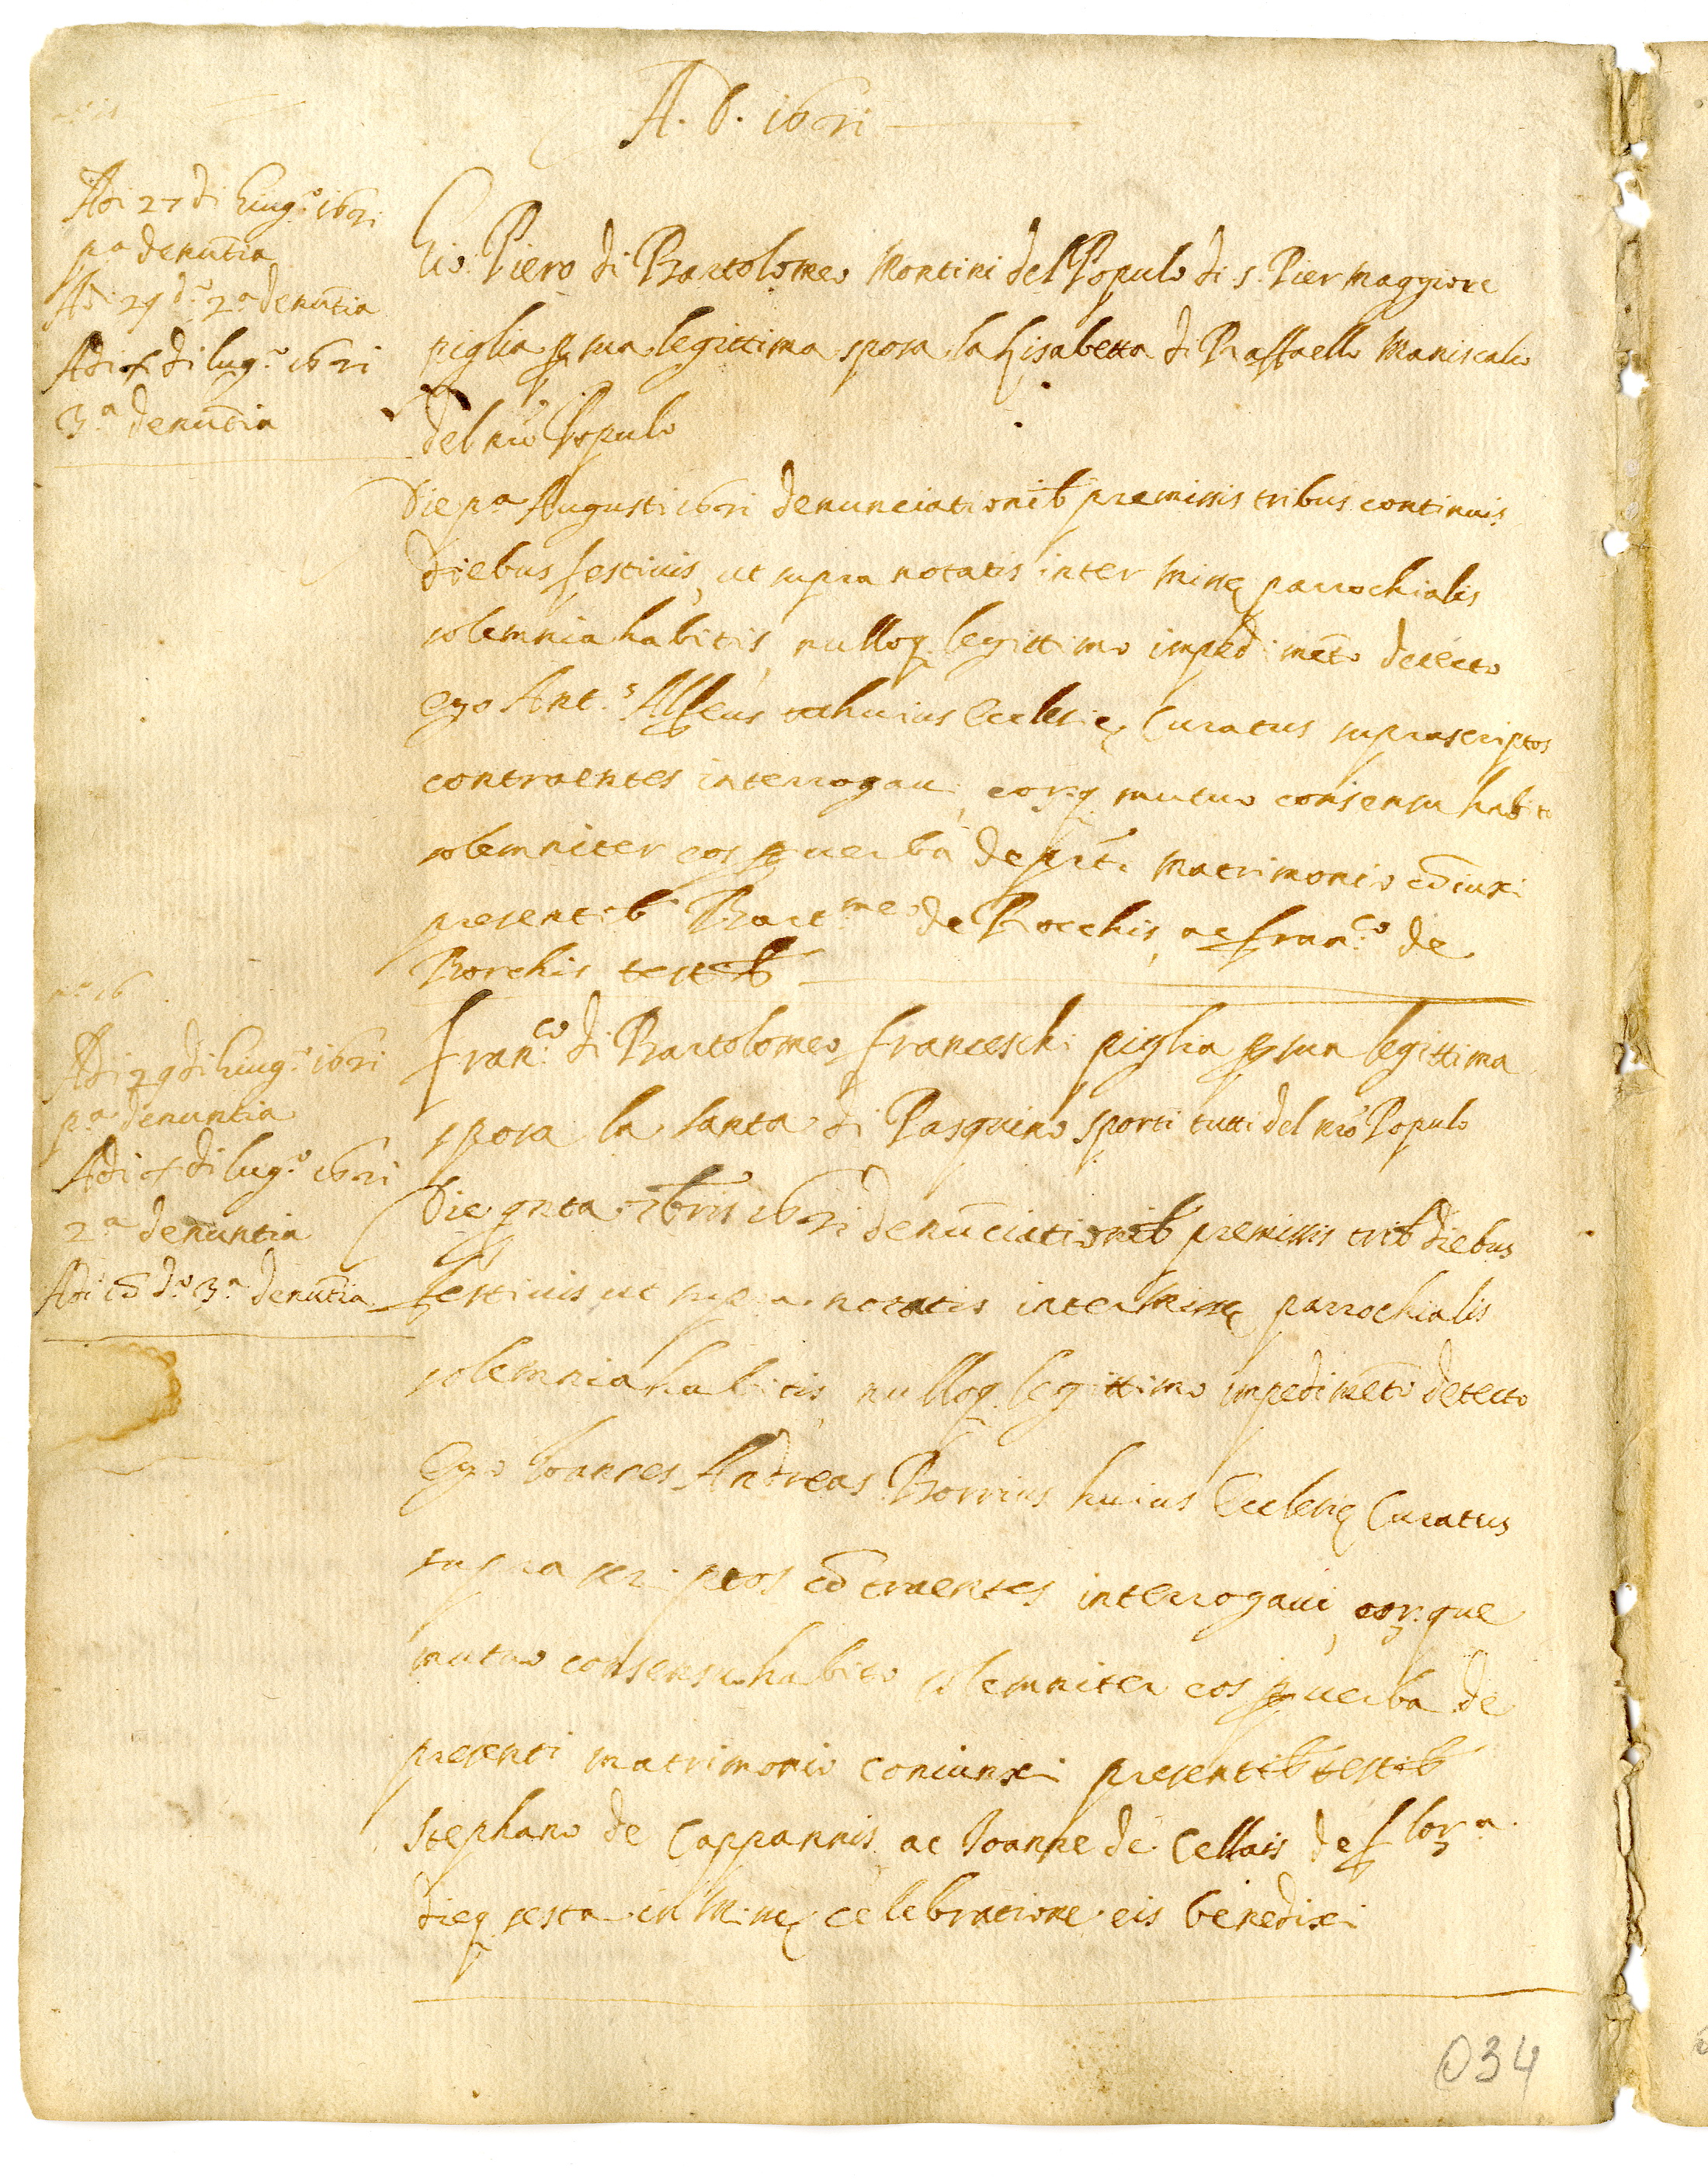 A. D. 1621
Adi 27 di Giug.º 1621
pª denūtia
Adi 29 dº 2ª denūtia
Adi 4 di lug.º 1621
3ª denūtia
Gio: Piero di Bartolomeo Montini del Populo di S. Pier Maggiore
piglia p sua legittima sposa la Lisabetta di Raffaello Maniscalco
del nrō Populo
Die pª Augusti 1621 denunciationib premissis tribus continuis
diebus festiuis, ut supra notatis inter Missę parrochialis
solemnia habitis, nulloq legittimo impedimēto detecto
ego Ant.s huius Ecclesię Curatus suprascriptos
contraentes interrogaui, eorq mutuo consensu habito
solemniter eos p uerba de pnti Matrimonio cōiuxi
presentib Bartmeo de Rocchis, ac Fran.co de
Borchis testib
nº 16
Adi 29 di Giug.º 1621
pª denuntia
Adi 4 di lug.º 1621
2ª denuntia
Adi dº 3ª denūtia
Fran.co di Bartolomeo Franceschi piglia p sua legittima
sposa la Santa di Pasquino Sporti tutti del nrō Populo
Die 7bris 1621 denūciationib premissis trib diebus
festiuis ut supra notatis inter Missę parrochialis
solemnia habitis, nulloq legittimo impedimēto detecto
Ego Ioannes Andreas Borrius huius Ecclesię Curatus
suprascriptos cōtraentes interrogaui, eorque
mutuo consensu habito solemniter eos p uerba de
presenti matrimonio coniunxi presentib testib
Stephano de Cappannis ac Ioanne de Cellais de Flor.ª
dieq sesta in Missę celebratione eis benedixi
034